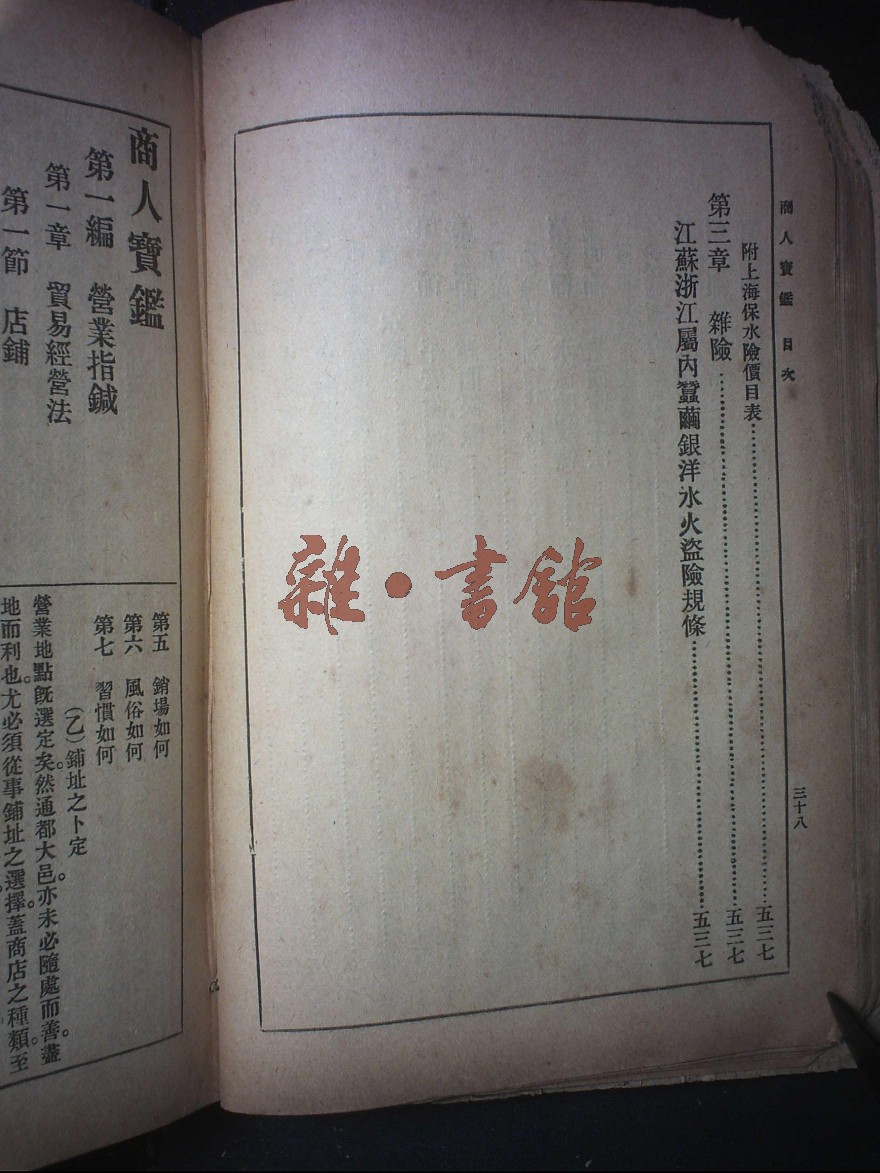 商人寶鑑 目次
三十八
附上海保水險價目表 五三七
第三章 雜險 五三七
江蘇浙江屬內蠶繭銀洋水火盜險規條 五三七
雜·書館
商人寶鑑
第一編 營業指鍼
第一章 貿易經營法
第一節 店鋪
第五 銷場如何
第六 風俗如何
第七 習慣如何
(乙)鋪址之卜定
營業地點旣選定矣。然通都大邑。亦未必隨處而善。盡
地而利也。尤必須從事鋪址之選擇。蓋商店之種類至